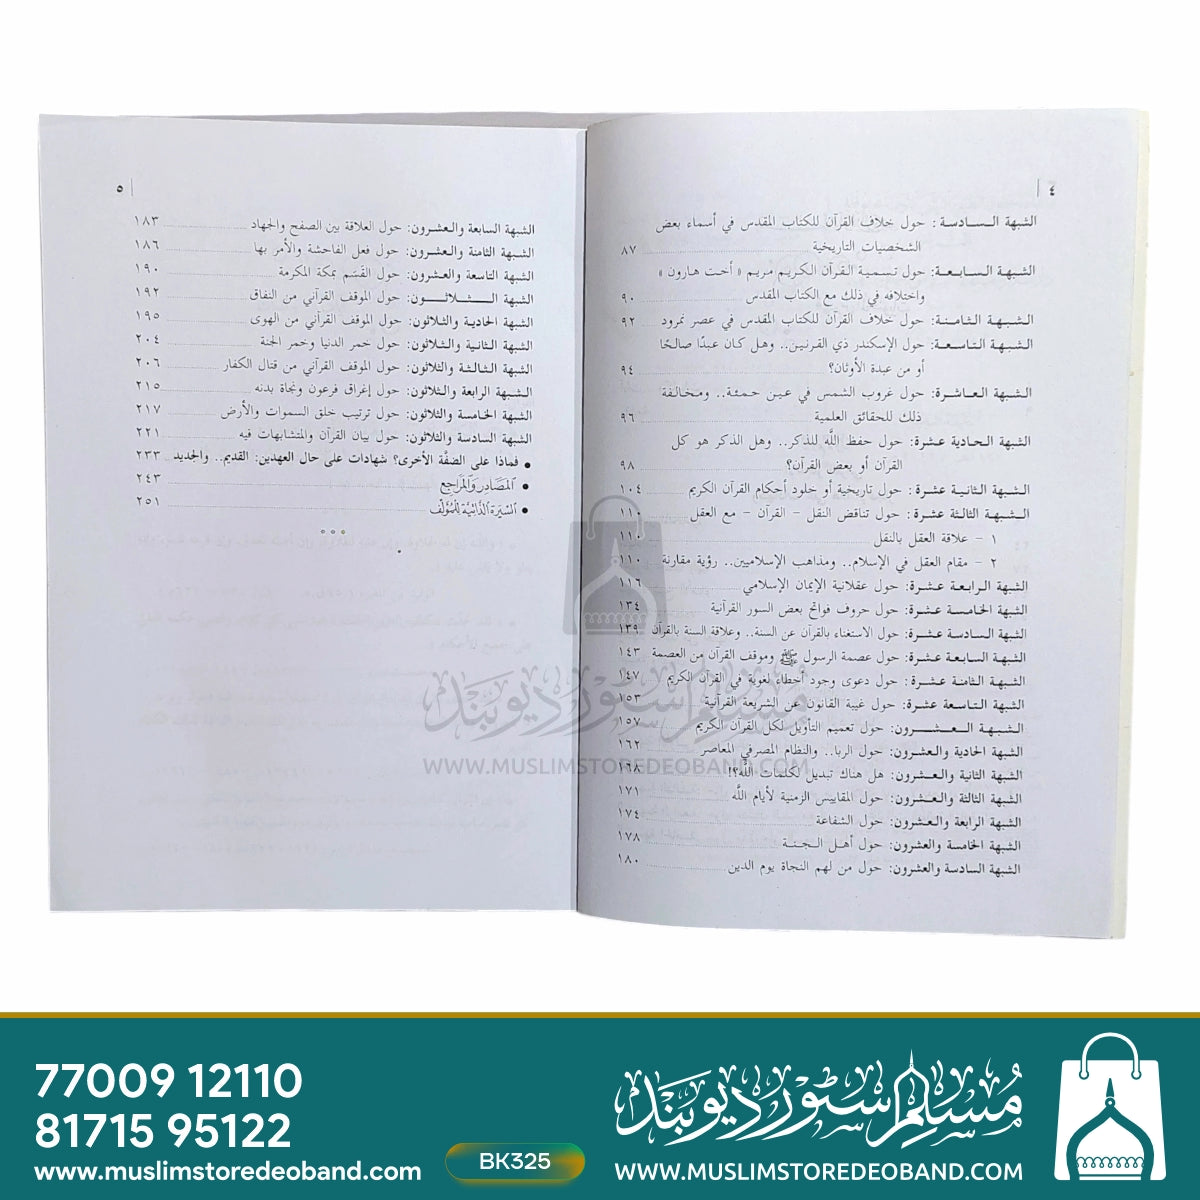 ٤
الشبهة الـسـادسـة: حول خلاف القرآن للكتاب المقدس في أسماء بعض
الشخصيات التاريخية ٨٧
الشبهة السـابـعـة: حول تسمية القرآن الكريم مريم « أخت هارون »
واختلافه في ذلك مع الكتاب المقدس ٩٠
الشبهة الثامنة: حول خلاف القرآن للكتاب المقدس في عصر نمرود ٩٢
الشبهة التاسعة: حول الإسكندر ذي القرنين.. وهل كان عبدًا صالحًا
أو من عبدة الأوثان؟ ٩٤
الشبهة العاشرة: حول غروب الشمس في عين حمئة.. ومخالفة
ذلك للحقائق العلمية ٩٦
الشبهة الحادية عشرة: حول حفظ اللَّه للذكر.. وهل الذكر هو كل
القرآن أو بعض القرآن؟ ٩٨
الشبهة الثانية عشرة: حول تاريخية أو خلود أحكام القرآن الكريم ١٠٤
الشبهة الثالثة عشرة: حول تناقض النقل - القرآن - مع العقل ١١٠
١ - علاقة العقل بالنقل ١١٠
٢ - مقام العقل في الإسلام.. ومذاهب الإسلاميين.. رؤية مقارنة ١١٠
الشبهة الرابعة عشرة: حول عقلانية الإيمان الإسلامي ١١٦
الشبهة الخامسة عشرة: حول حروف فواتح بعض السور القرآنية ١٣٤
الشبهة السادسة عشرة: حول الاستغناء بالقرآن عن السنة.. وعلاقة السنة بالقرآن ١٣٩
الشبهة السابعة عشرة: حول عصمة الرسول ﷺ وموقف القرآن من العصمة ١٤٣
الشبهة الثامنة عشرة: حول دعوى وجود أخطاء لغوية في القرآن الكريم ١٤٧
الشبهة التاسعة عشرة: حول غيبة القانون عن الشريعة القرآنية ١٥٣
الشبهة العـشـرون: حول تعميم التأويل لكل القرآن الكريم ١٥٧
الشبهة الحادية والعشرون: حول الربا.. والنظام المصرفي المعاصر ١٦٢
الشبهة الثانية والعشرون: هل هناك تبديل لكلمات اللَّه؟! ١٦٨
الشبهة الثالثة والعشرون: حول المقاييس الزمنية لأيام اللَّه ١٧١
الشبهة الرابعة والعشرون: حول الشفاعة ١٧٤
الشبهة الخامسة والعشرون: حول أهل الجنة ١٧٨
الشبهة السادسة والعشرون: حول من لهم النجاة يوم الدين ١٨٠
٥
الشبهة السابعة والعشرون: حول العلاقة بين الصفح والجهاد ١٨٣
الشبهة الثامنة والعشرون: حول فعل الفاحشة والأمر بها ١٨٦
الشبهة التاسعة والعشرون: حول القَسَم بمكة المكرمة ١٩٠
الشبهة الـثـلاثـون: حول الموقف القرآني من النفاق ١٩٢
الشبهة الحادية والثلاثون: حول الموقف القرآني من الهوى ١٩٥
الشبهة الثانية والثلاثون: حول خمر الدنيا وخمر الجنة ٢٠٤
الشبهة الثالثة والثلاثون: حول الموقف القرآني من قتال الكفار ٢٠٦
الشبهة الرابعة والثلاثون: حول إغراق فرعون ونجاة بدنه ٢١٥
الشبهة الخامسة والثلاثون: حول ترتيب خلق السموات والأرض ٢١٧
الشبهة السادسة والثلاثون: حول بيان القرآن والمتشابهات فيه ٢٢١
• فماذا على الضفَّة الأخرى؟ شهادات على حال العهدين: القديم.. والجديد ٢٣٣
• المصَادِر وَالمَراجِع ٢٤٣
• السِّيرَة الذَّاتِيَّة لِلمُؤلِّف ٢٥١
مسلم سٹور دیوبند
WWW.MUSLIMSTOREDEOBAND.COM
77009 12110
81715 95122
www.muslimstoredeoband.com
BK325
مسلم سٹور دیوبند
WWW.MUSLIMSTOREDEOBAND.COM